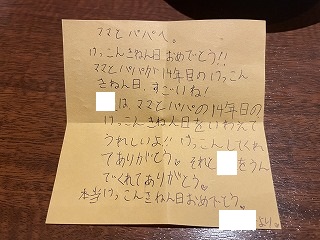 ママとパパへ。
けっこんきねん日おめでとう!!
ママとパパが14年目のけっこん
きねん日、すごいね!
は、ママとパパの14年目の
けっこんきねん日をいわえて
うれしいよ!! けっこんしてくれ
てありがとう。それと をうん
でくれてありがとう。
本当けっこんきねん日おめでとう。
より。